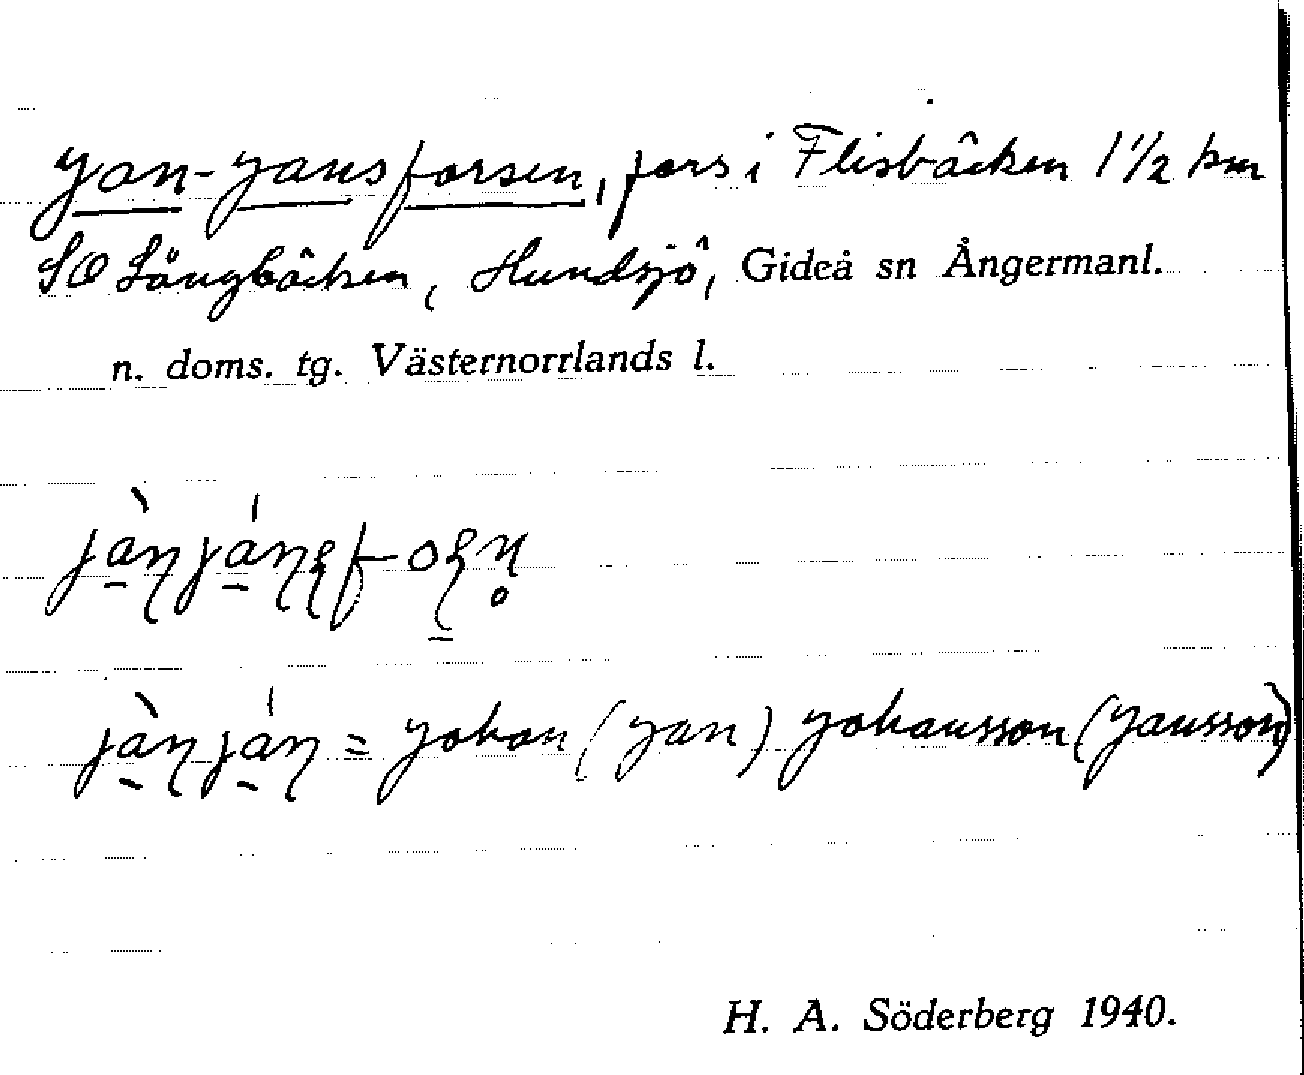 Jan-Jansforsen, fors i Flisbäcken 1 1/2 km
SO Långbäcken, Hundsjö, Gideå sn Ångermanl.
n. doms. tg. Västernorrlands l.
= Johan (Jan) Johansson (Jansson)
H. A. Söderberg 1940.